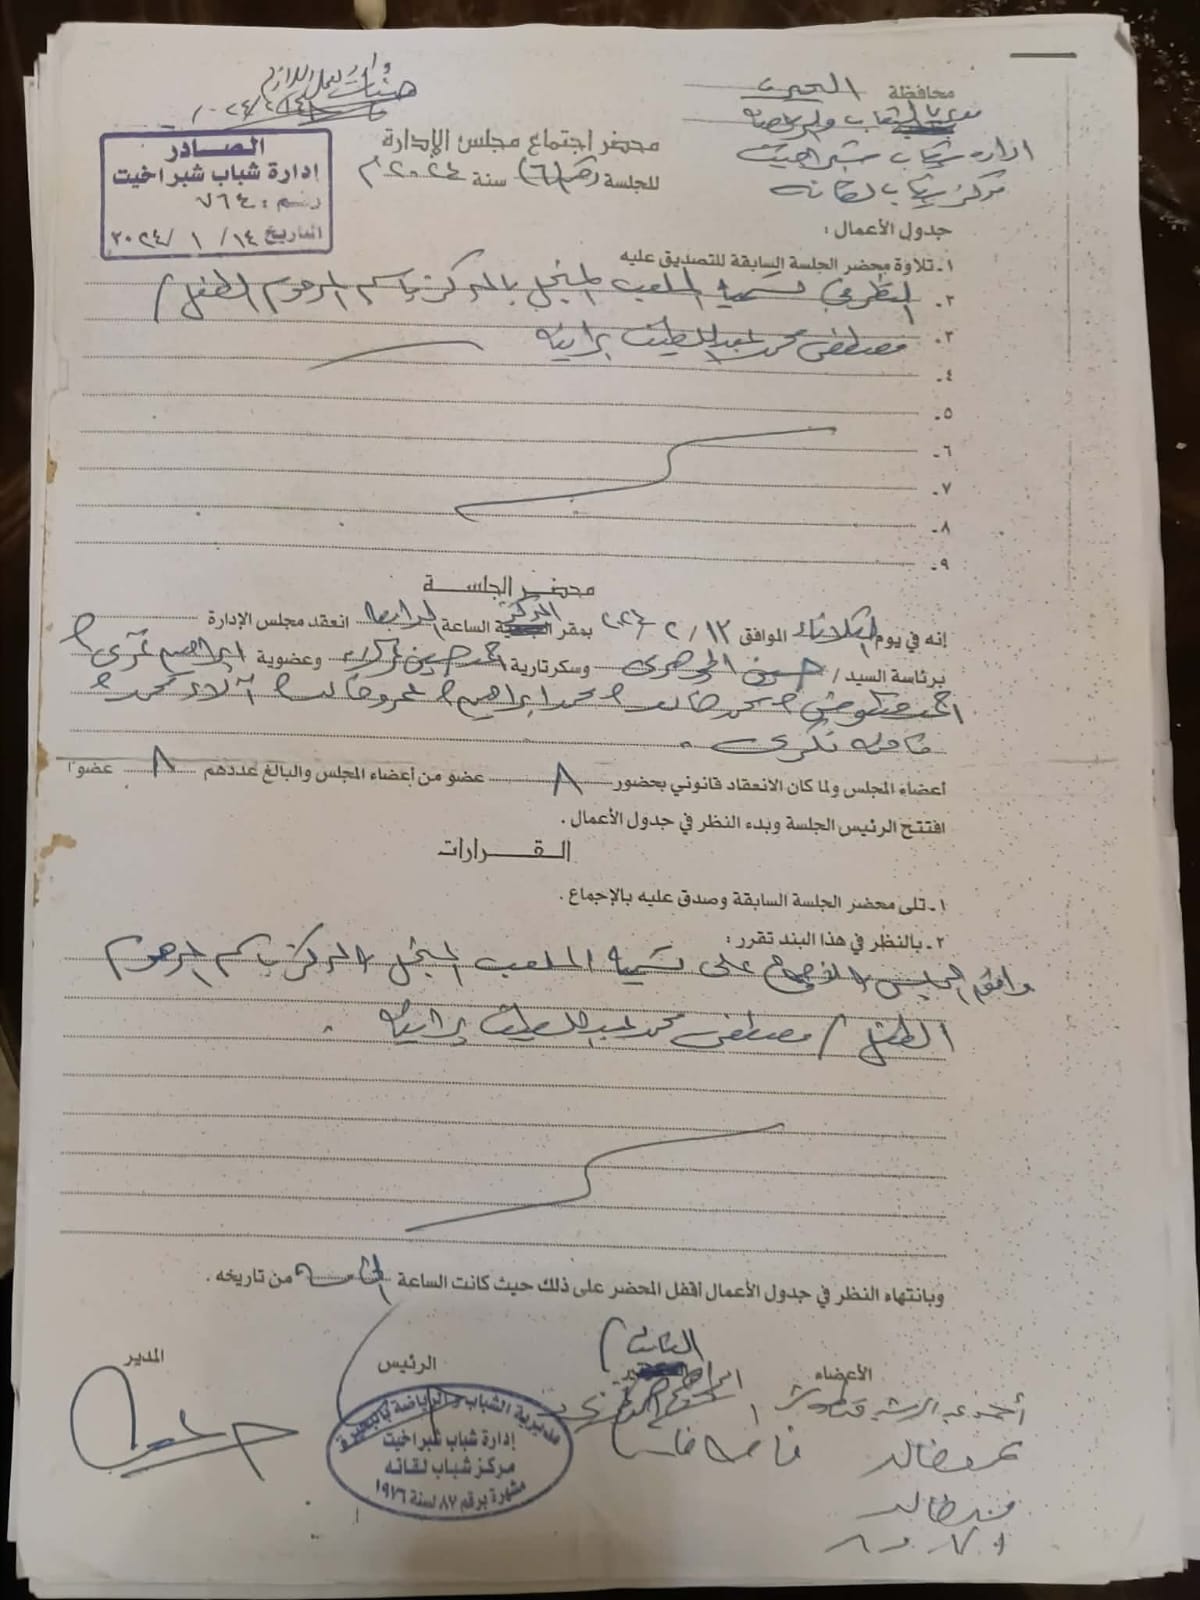 محافظة البحيرة
مديرية الشباب والرياضة
ادارة شباب شبراخيت
مركز شباب لقانه
للعمل اللازم
الصادر
إدارة شباب شبراخيت
رقم : ٧٦٤
التاريخ ١٤ / ١ / ٢٠٢٤
محضر اجتماع مجلس الإدارة
للجلسة رقم (٦) سنة ٢٠٢٤ م
جدول الأعمال :
١ - تلاوة محضر الجلسة السابقة للتصديق عليه
٢ - النظر في تسمية الملعب المنجل بالمركز باسم المرحوم الطفل /
٣ - مصطفى محمد عبد اللطيف
٤ -
٥ -
٦ -
٧ -
٨ -
٩ -
محضر الجلسة
إنه في يوم الثلاثاء الموافق ١٣ / ٢ / ٢٠٢٤ بمقر المركز الساعة الرابعة انعقد مجلس الإدارة
برئاسة السيد / حسين وسكرتارية وعضوية ابراهيم
احمد محمد خالد محمد ابراهيم عمرو خالد آلاء محمد
فاطمه
أعضاء المجلس ولما كان الانعقاد قانوني بحضور ٨ عضو من أعضاء المجلس والبالغ عددهم ٨ عضوًا
افتتح الرئيس الجلسة وبدء النظر في جدول الأعمال .
القرارات
١ - تلى محضر الجلسة السابقة وصدق عليه بالإجماع .
٢ - بالنظر في هذا البند تقرر :
وافق المجلس بالاجماع على تسمية الملعب المنجل بالمركز باسم المرحوم
الطفل / مصطفى محمد عبد اللطيف
وبانتهاء النظر في جدول الأعمال أقفل المحضر على ذلك حيث كانت الساعة الخامسة من تاريخه .
الأعضاء
الرئيس
المدير
عمرو خالد
محمد خالد
مديرية الشباب والرياضة بالبحيرة
إدارة شباب شبراخيت
مركز شباب لقانه
مشهرة برقم ٨٧ لسنة ١٩٧٦